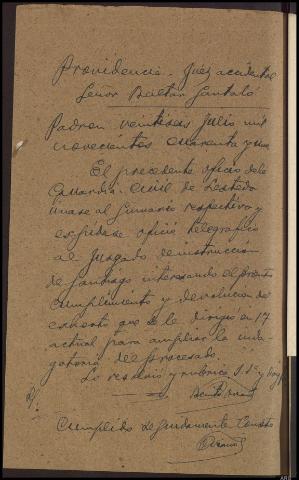 Providencia - Juez accidental
Señor Beltar Santaló
Padron veintiseis Julio mil
novecientos cuarenta y uno
El precedente oficio dela
Guardia Civil de Lestedo
únase al sumario respectivo y
expídase oficio telegrafico
al Juzgado de instrucción
de Santiago interesando el pronto
cumplimiento y devolucion de
exhorto que se le dirigio en 17
actual para ampliar la inda-
gatoria del procesado.
Lo resolvió y rubrica S. Sª y doy fe
Cumplido seguidamente Consta